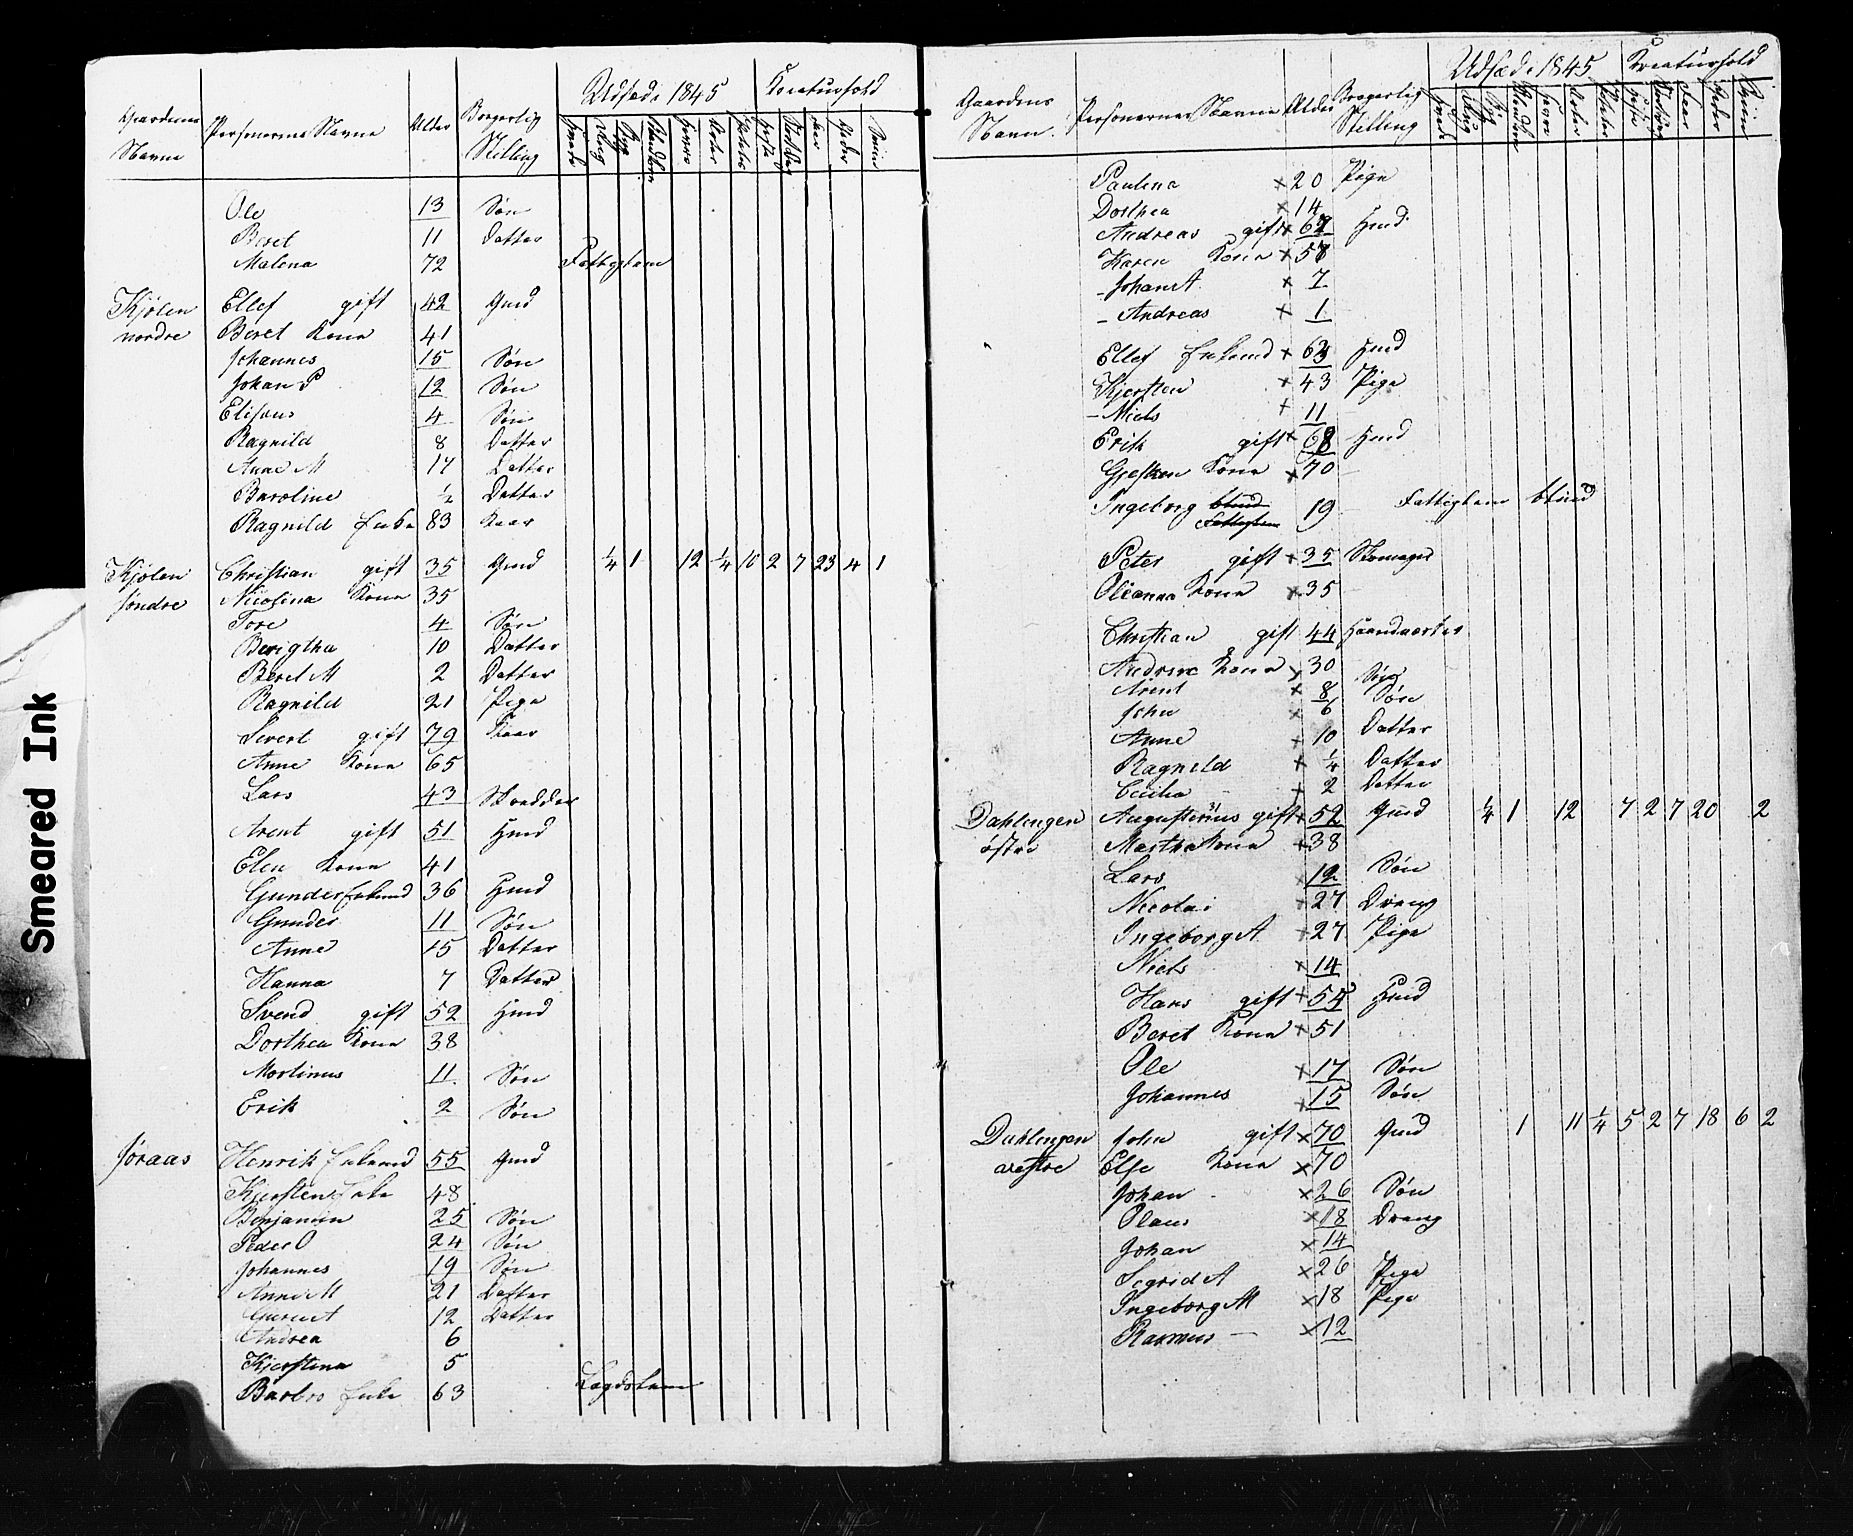 Smeared Ink
Gaardens Navne Personernes Navne Alder Borgerlig Stilling Udsæd i 1845 Kreaturhold
Hvede Rug Byg Blandkorn Havre Erter Poteter Heste Storfæe Faar Geder Sviin
Ole 13 Søn
Beret 11 Datter
Malena 72 Fattiglem
Kjølen nordre Ellef gift 42 Gmd
Beret Kone 41
Johannes 15 Søn
Johan P 12 Søn
Elisæus 4 Søn
Ragnild 8 Datter
Anne M 17 Datter
Baroline ½ Datter
Ragnild Enke 83 Kaar
Kjølen søndre Christian gift 35 Gmd ¼ 1 12 ¼ 10 2 7 23 4 1
Nicolina Kone 35
Tore 4 Søn
Berigtha 10 Datter
Beret M 2 Datter
Ragnild 21 Pige
Sivert gift 79 Kaar
Anne Kone 65
Lars 43 Skredder
Arent gift 51 Hmd
Elen Kone 41
Gunder Enkemd 36 Hmd
Gunder 11 Søn
Anne 15 Datter
Hanna 7 Datter
Svend gift 52 Hmd
Dorthea Kone 38
Mortinus 11 Søn
Erik 2 Søn
Søraas Henrik Enkemd 55 Gmd
Kjersten Enke 48
Benjamin 25 Søn
Peder O 24 Søn
Johannes 19 Søn
Anne M 21 Datter
12 Datter
Andrea 6
Kjerstina 5
Barbro Enke 63 Lægdslem
Gaardens Navn. Personernes Navne Alder Borgerlig Stilling Udsæd i 1845 Kreaturhold
Hvede Rug Byg Blandkorn Havre Erter Poteter Heste Storfæe Faar Geder Sviin
Paulina x 20 Pige
Dorthea x 14
Andreas gift x 67 Hmd
Karen Kone x 57
- Johan A x 7
- Andreas x 1
Ellef Enkemd x 63 Hmd
Kjersten x 43 Pige
- Niels x 11
Erik gift x 68 Hmd
Gjertken Kone x 70
Ingeborg blind Fattiglem 19 Fattiglem blind
Peter gift x 35 Skomager
Olianna Kone x 35
Christian gift 44 Haandverker
Andrine Kone x 30
Arent x 8 Søn
John x 6 Søn
Anne x 10 Datter
Ragnild x ¼ Datter
Cicilia x 2 Datter
Dahlingen østre Augustinius gift x 52 Gmd ¼ 1 12 7 2 7 20 2
Martha Kone x 38
Lars x 12 Søn
Nicolai x 27 Dreng
Ingeborg A x 27 Pige
Niels x 14
Hans gift x 54 Hmd
Beret Kone x 51
Ole x 17 Søn
Johannes x 15 Søn
Dahlingen vestre John gift x 70 Gmd 1 11 ¼ 5 2 7 18 6 2
Else Kone x 70
Johan x 26 Søn
Olaus x 18 Dreng
Johan x 14
Segrid A x 26 Pige
Ingeborg M x 18 Pige
Rasmus x 12